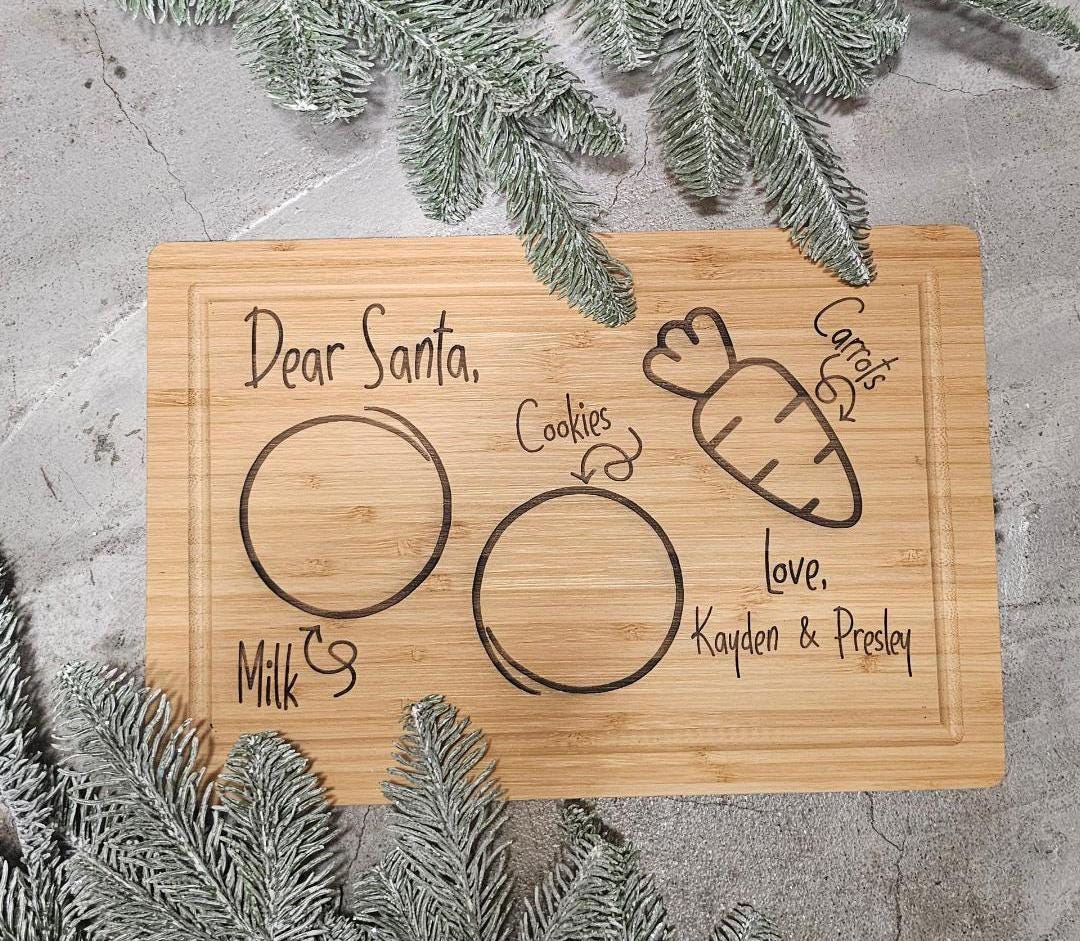 Dear Santa,
Carrots
Cookies
Milk
Love,
Kayden & Presley